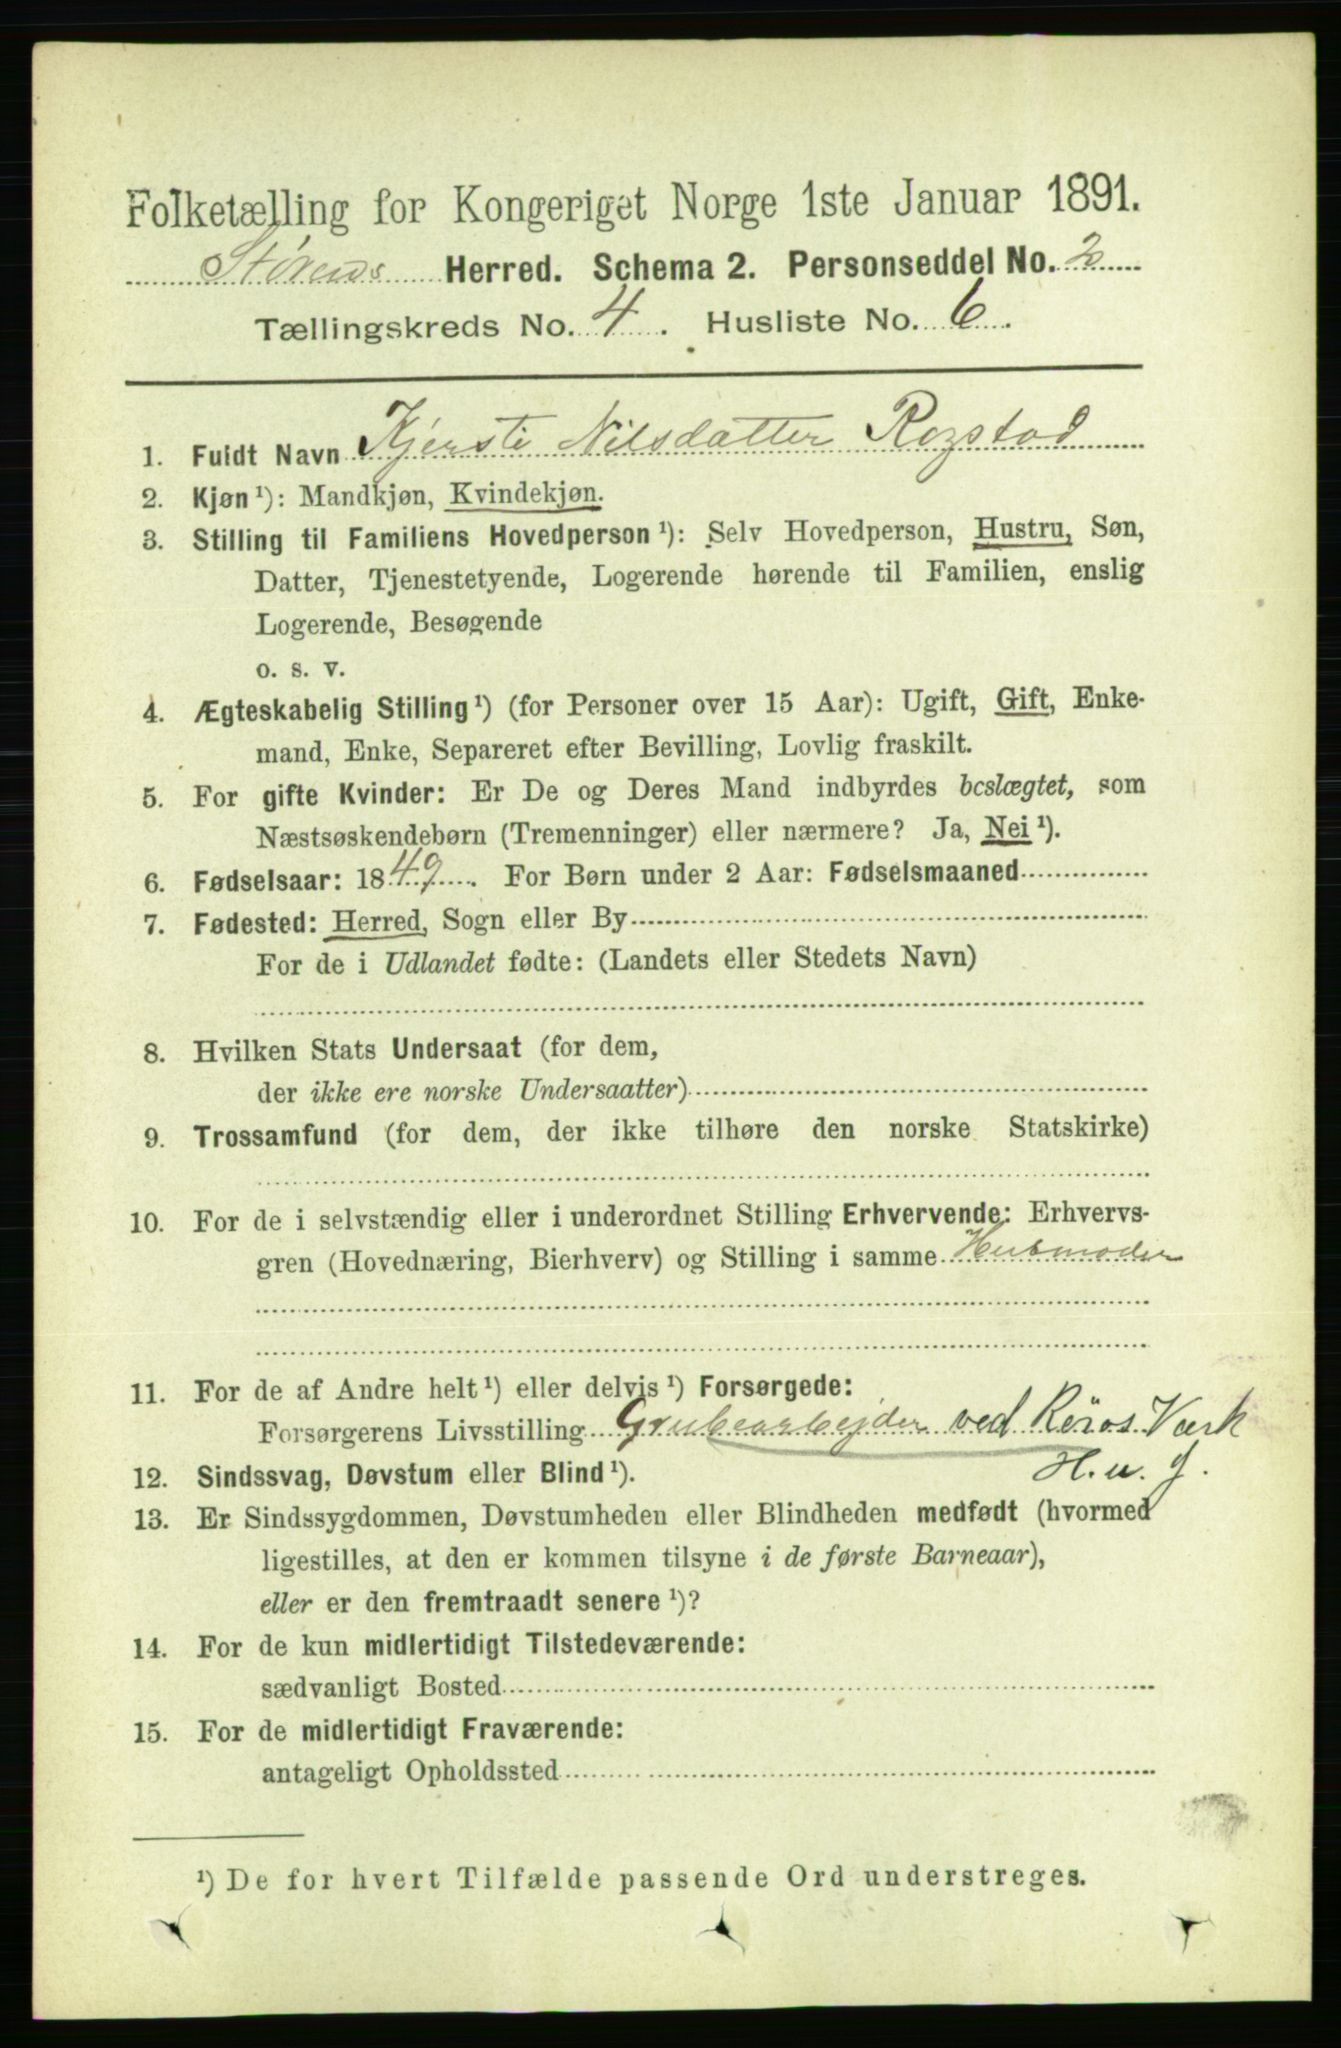 Folketælling for Kongeriget Norge 1ste Januar 1891.
Størens Herred. Schema 2. Personseddel No. 2
Tællingskreds No. 4. Husliste No. 6.
1. Fuldt Navn Kjersti Nilsdatter Rogstad
2. Kjøn ¹): Mandkjøn, Kvindekjøn.
3. Stilling til Familiens Hovedperson ¹): Selv Hovedperson, Hustru, Søn,
Datter, Tjenestetyende, Logerende hørende til Familien, enslig
Logerende, Besøgende
o. s. v.
4. Ægteskabelig Stilling ¹) (for Personer over 15 Aar): Ugift, Gift, Enke-
mand, Enke, Separeret efter Bevilling, Lovlig fraskilt.
5. For gifte Kvinder: Er De og Deres Mand indbyrdes beslægtet, som
Næstsøskendebørn (Tremenninger) eller nærmere? Ja, Nei ¹).
6. Fødselsaar: 1849. For Børn under 2 Aar: Fødselsmaaned
7. Fødested: Herred, Sogn eller By
For de i Udlandet fødte: (Landets eller Stedets Navn)
8. Hvilken Stats Undersaat (for dem,
der ikke ere norske Undersaatter)
9. Trossamfund (for dem, der ikke tilhøre den norske Statskirke)
10. For de i selvstændig eller i underordnet Stilling Erhvervende: Erhvervs-
gren (Hovednæring, Bierhverv) og Stilling i samme Husmoder
11. For de af Andre helt ¹) eller delvis ¹) Forsørgede:
Forsørgerens Livsstilling Grubearbejder ved Röros Værk
12. Sindssvag, Døvstum eller Blind ¹). H. u. J.
13. Er Sindssygdommen, Døvstumheden eller Blindheden medfødt (hvormed
ligestilles, at den er kommen tilsyne i de første Barneaar),
eller er den fremtraadt senere ¹)?
14. For de kun midlertidigt Tilstedeværende:
sædvanligt Bosted
15. For de midlertidigt Fraværende:
antageligt Opholdssted
¹) De for hvert Tilfælde passende Ord understreges.